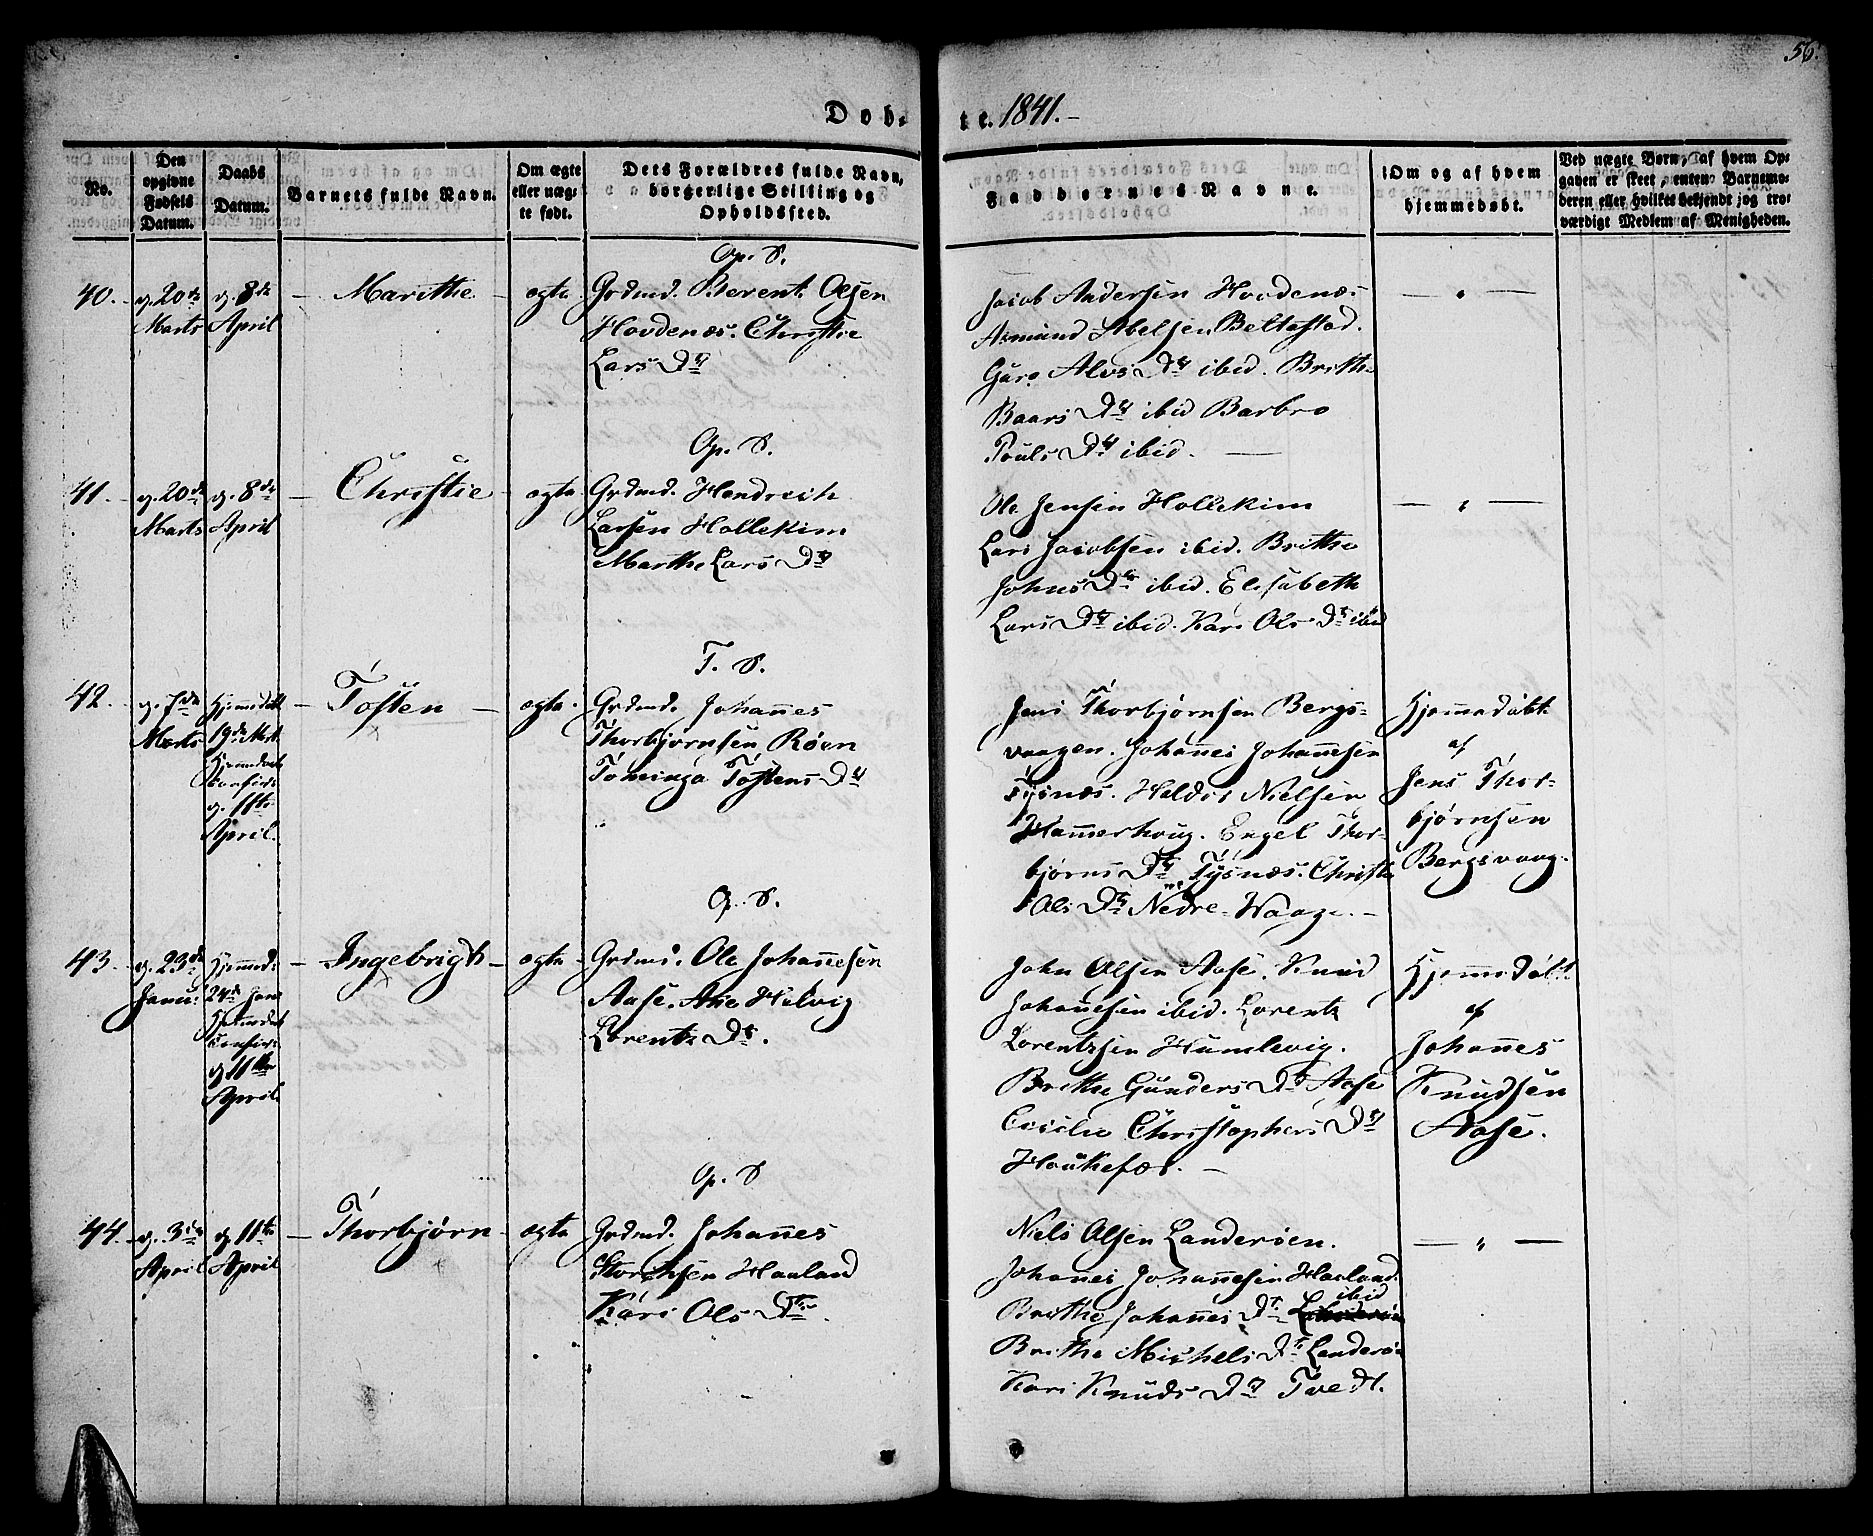 56.
Døb-
te. 1841.-
No.
Den
opgivne
Fødsels
Datum.
Daabs
Datum.
Barnets fulde Navn.
Om ægte
eller uæg-
te født.
Dets Forældres fulde Navn,
borgerlige Stilling og
Opholdssted.
Faddernes Navne.
Om og af hvem
hjemmedøbt.
Ved uægte Børn, af hvem Op-
gaven er skeet, enten Barnemo-
deren eller hvilket bekjendt og tro-
værdigt Medlem af Menigheden.
Op. S.
40. d. 20de
Marts
d. 8de
April
Marithe
ægte
Grdmd. Berent Olsen
Hovdenæs. Christie
Lars Dtr
Jacob Andersen Hovdenæs
Asmund Abelsen Beltestad.
Guro Alvs Dtr ibid. Brithe
Baars Dtr ibid Barbro
Pouls Dtr ibid.
Op. S.
41. d. 20de
Marts
d. 8de
April
Christie
ægte
Grdmd. Hendrich
Larsen Hollekim
Marthe Lars Dtr
Ole Jensen Hollekim
Lars Jacobsen ibid. Brithe
Johns Dtr ibid. Elisabeth
Lars Dtr ibid. Kari Ols Dtr ibid
T. S.
42. d. 7de
Marts
Hjemmedøbt
19de Mart.
Hjemmedaab
confir:
d. 11te
April.
Tosten
ægte
Grdmd. Johannes
Thorbjørnsen Røen
Tominga Tostens Dtr
Jens Thorbjørnsen Bergs-
vaagen. Johannes Johannesen
Tysnæs. Haldor Nielsen
Hammerhoug. Engel Thor-
bjørns Dtr Tysnæs. Christi
Ols Dtr Nedre-Waage.
Hjemmedøbt
af
Jens Thor-
bjørnsen
Bergsvaag.
Op. S.
43. d. 23de
Janu:
Hjemmed:
24de Jan
Hjemmedaab
confir:
d. 11te
April.
Ingebrigt
ægte
Grdmd. Ole Johannesen
Aase. Ane Helvig
Lorentz Dtr.
John Olsen Aase. Knud
Johannesen ibid. Lorentz
Lorentzsen Humlevig.
Brithe Gunders Dtr Aase
Cicilie Christophers Dtr
Houkefær.
Hjemmedøbt
af
Johannes
Knudsen
Aase.
Op. S
44. d. 3die
April
d. 11te
April
Thorbjørn
ægte
Grdmd. Johannes
Storchsen Haaland
Kari Ols Dtr.
Niels Olsen Landerøen.
Johanes Johannesen Haaland.
ibid
Brithe Johannes Dtr Landerøen
Brithe Michels Dtr Landerøe
Kari Knuds Dtr Tvedt.